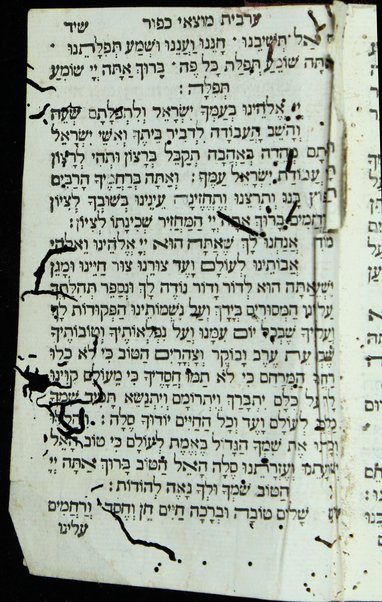 ערבית מוצאי כפור שיד
תְּשִׁיבֵנוּ · חָנֵּנוּ וַעֲנֵנוּ וּשְׁמַע תְּפִלָּתֵנוּ
אַתָּה שׁוֹמֵעַ תְּפִלַּת כָּל פֶּה · בָּרוּךְ אַתָּה יְיָ שׁוֹמֵעַ
תְּפִלָּה :
אֱלֹהֵינוּ בְּעַמְּךָ יִשְׂרָאֵל וְלִתְפִלָּתָם שְׁעֵה
וְהָשֵׁב הָעֲבוֹדָה לִדְבִיר בֵּיתֶךָ וְאִשֵּׁי יִשְׂרָאֵל
מְהֵרָה בְּאַהֲבָה תְקַבֵּל בְּרָצוֹן וּתְהִי לְרָצוֹן
עֲבוֹדַת יִשְׂרָאֵל עַמֶּךָ : וְאַתָּה בְּרַחֲמֶיךָ הָרַבִּים
בָּנוּ וְתִרְצֵנוּ וְתֶחֱזֶינָה עֵינֵינוּ בְּשׁוּבְךָ לְצִיּוֹן
בָּרוּךְ יְיָ הַמַּחֲזִיר שְׁכִינָתוֹ לְצִיּוֹן :
אֲנַחְנוּ לָךְ שֶׁאַתָּה הוּא יְיָ אֱלֹהֵינוּ
אֲבוֹתֵינוּ לְעוֹלָם וָעֶד צוּרֵנוּ צוּר חַיֵּינוּ וּמָגֵן
הוּא לְדוֹר וָדוֹר נוֹדֶה לָךְ וּנְסַפֵּר תְּהִלָּתֶךָ
הַמְּסוּרִים בְּיָדֶךָ וְעַל נִשְׁמוֹתֵינוּ הַפְּקוּדוֹת לָךְ
שֶׁבְּכָל יוֹם עִמָּנוּ וְעַל נִפְלְאוֹתֶיךָ וְטוֹבוֹתֶיךָ
עֶרֶב וָבֹקֶר וְצָהֳרָיִם הַטּוֹב כִּי לֹא כָלוּ
הַמְרַחֵם כִּי לֹא תַמּוּ חֲסָדֶיךָ כִּי מֵעוֹלָם קִוִּינוּ
כֻּלָּם יִתְבָּרַךְ וְיִתְרוֹמֵם וְיִתְנַשֵּׂא תָּמִיד שִׁמְךָ
לְעוֹלָם וָעֶד וְכָל הַחַיִּים יוֹדוּךָ סֶּלָה :
אֶת שִׁמְךָ הַגָּדוֹל בֶּאֱמֶת לְעוֹלָם כִּי טוֹב
וְעֶזְרָתֵנוּ סֶלָה הָאֵל הַטּוֹב בָּרוּךְ אַתָּה יְיָ
הַטּוֹב שִׁמְךָ וּלְךָ נָאֶה לְהוֹדוֹת :
שָׁלוֹם טוֹבָה וּבְרָכָה חַיִּים חֵן וָחֶסֶד וְרַחֲמִים
עָלֵינוּ